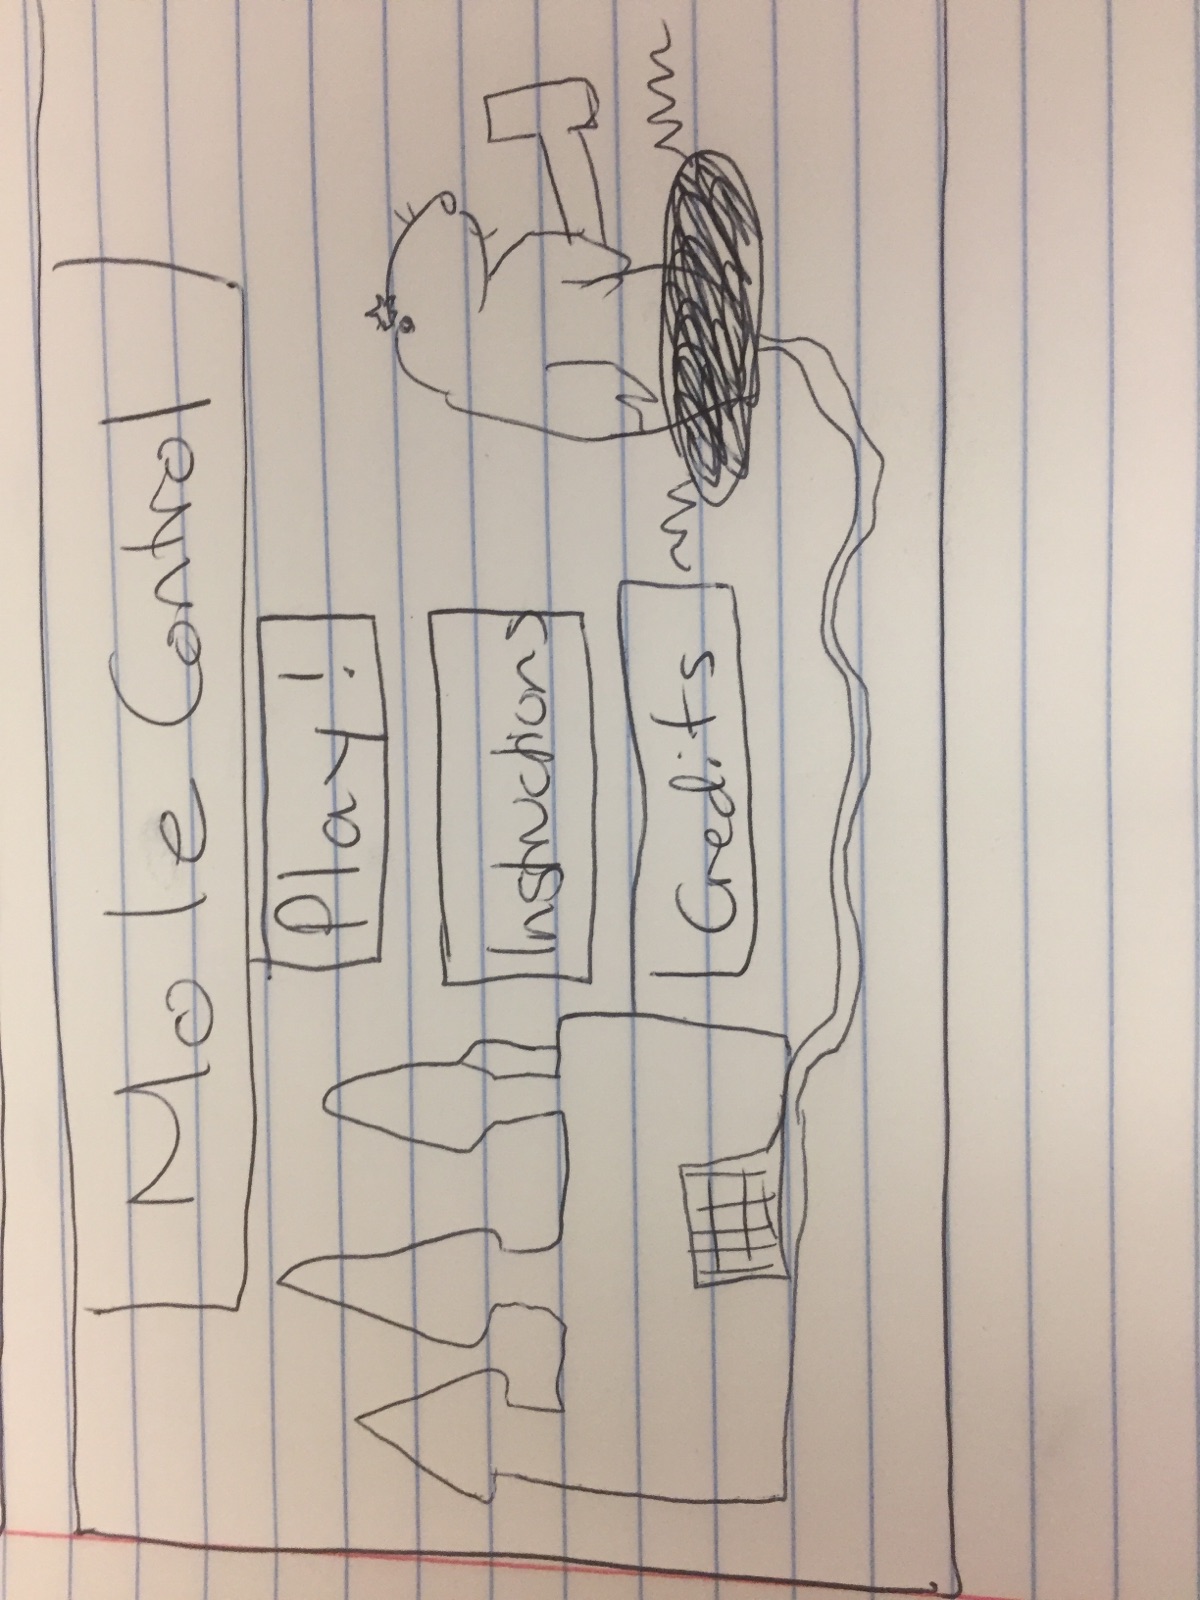 Mole Control
Play!
Instructions
Credits